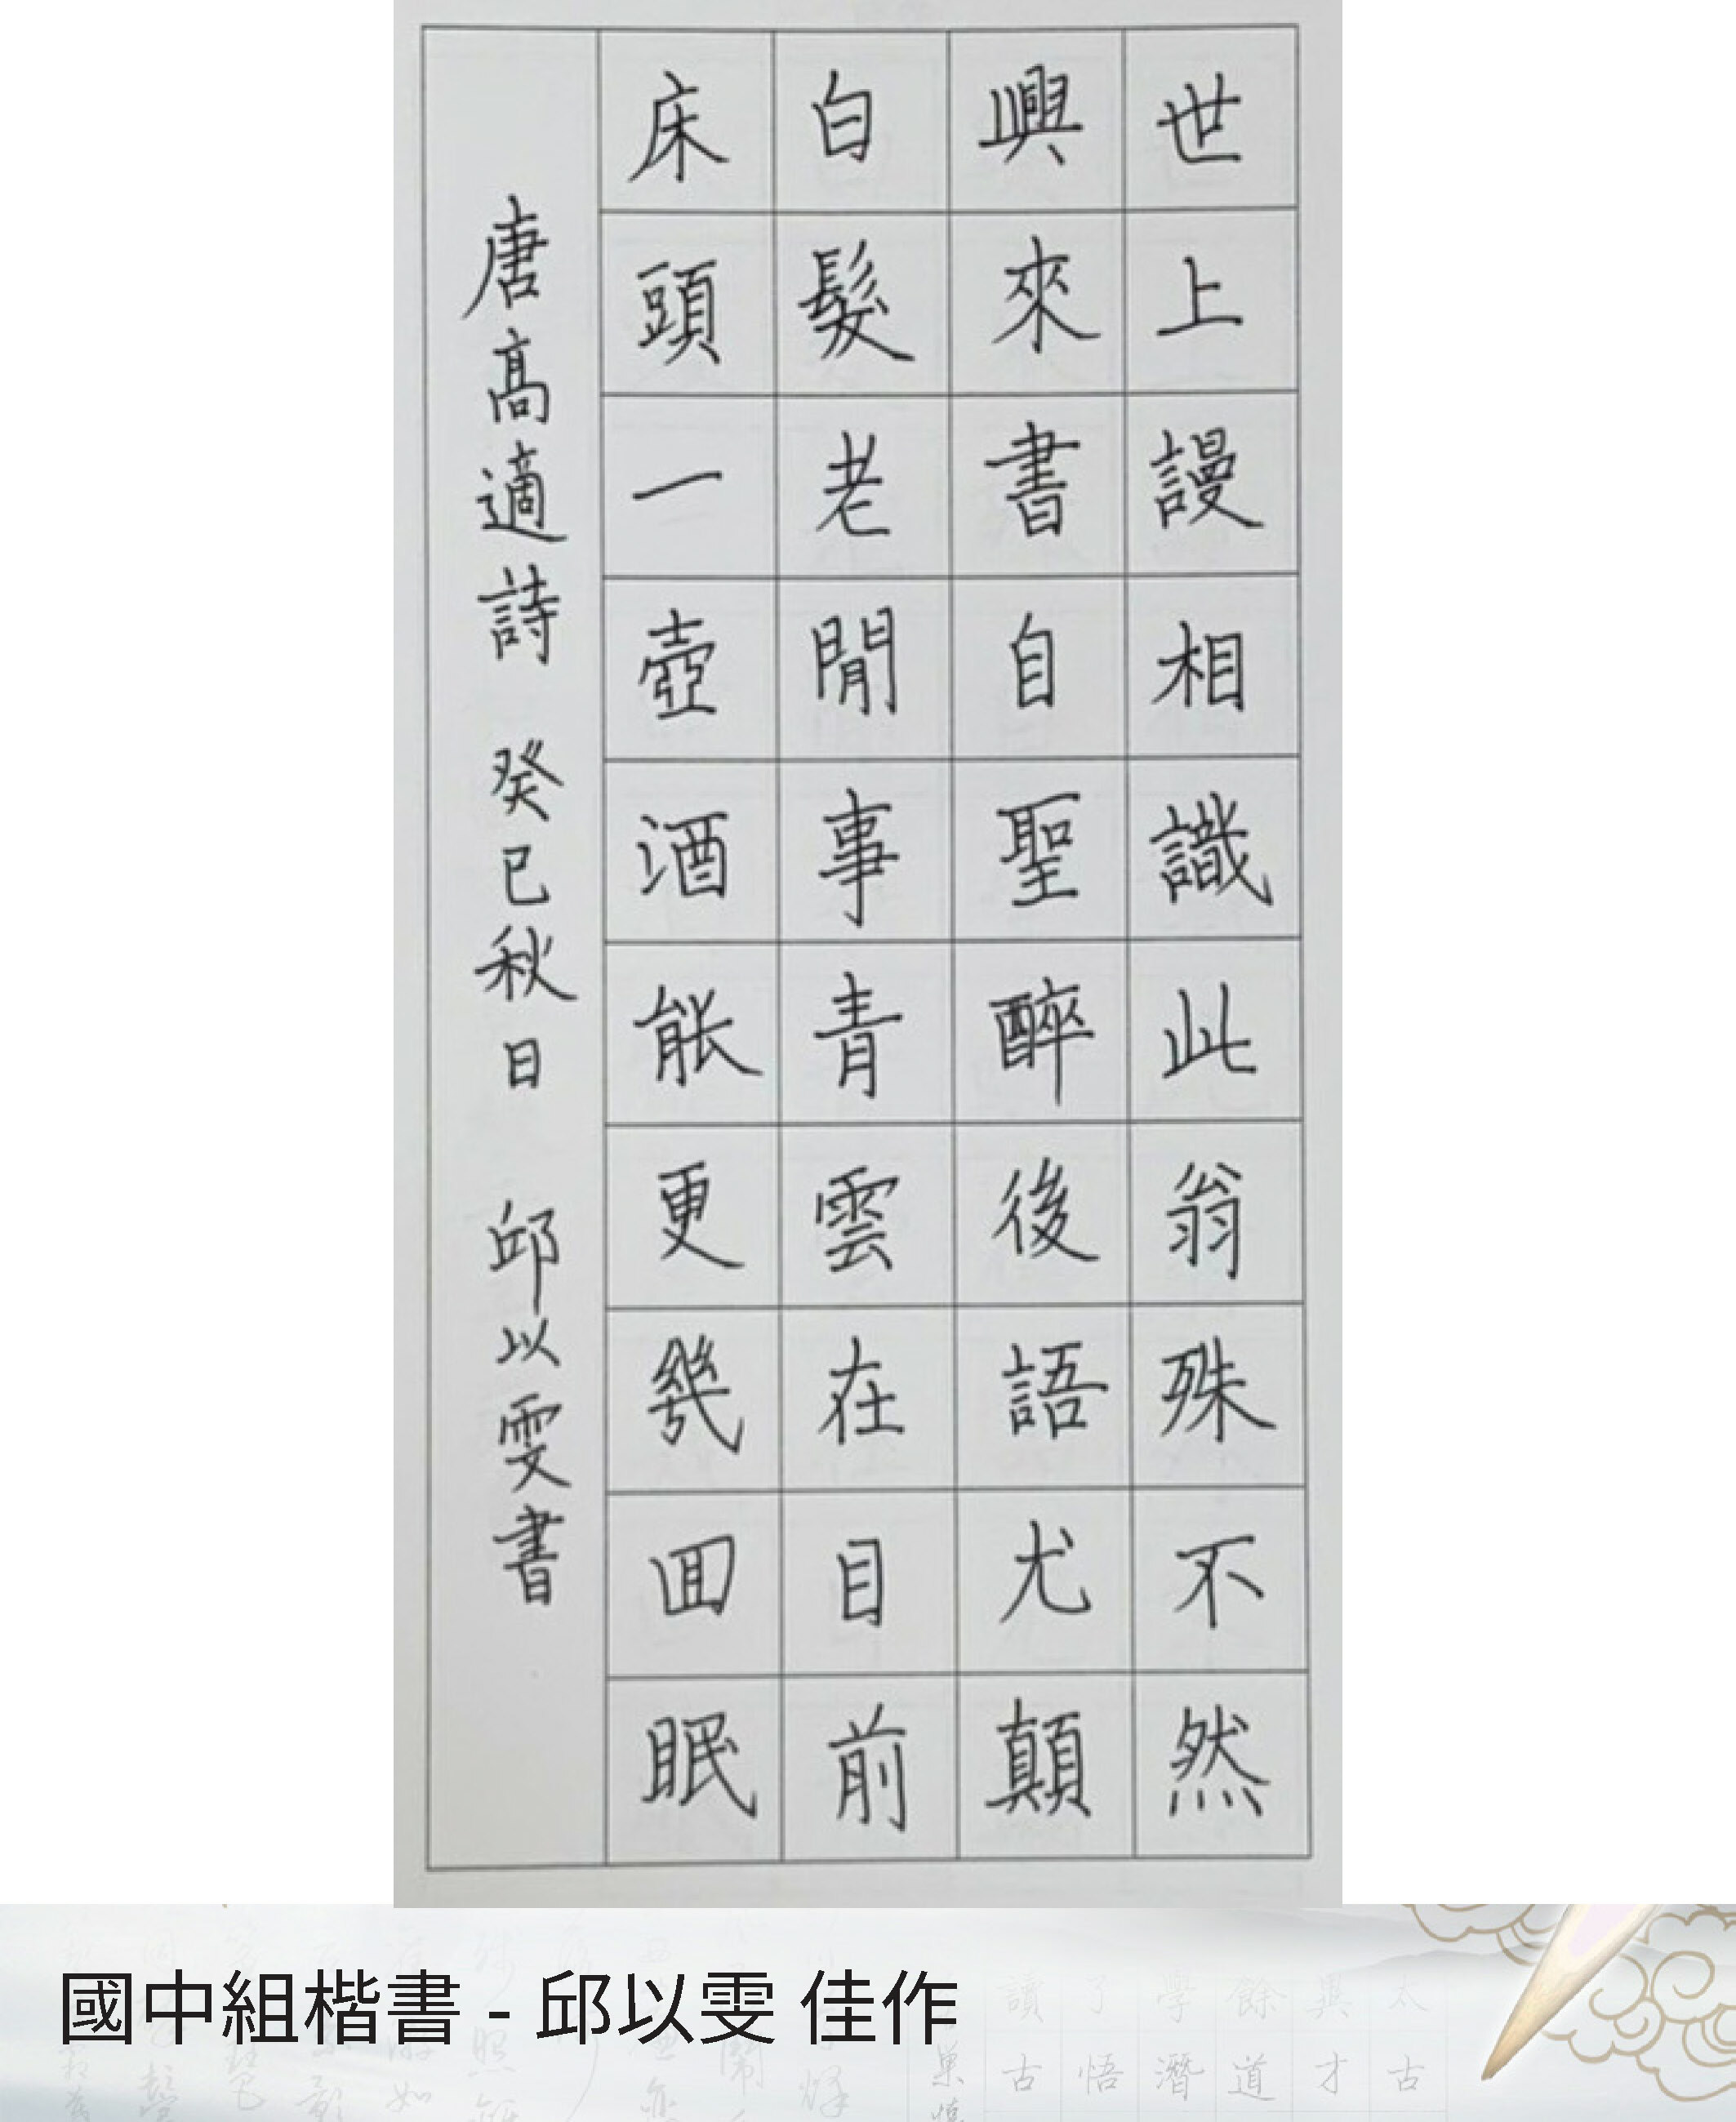 世上謾相識此翁殊不然
興來書自聖醉後語尤顛
白髮老閒事青雲在目前
床頭一壺酒能更幾回眠
唐高適詩 癸巳秋日 邱以雯書
國中組楷書 - 邱以雯 佳作
讀了學餘與太
古悟潛道才古